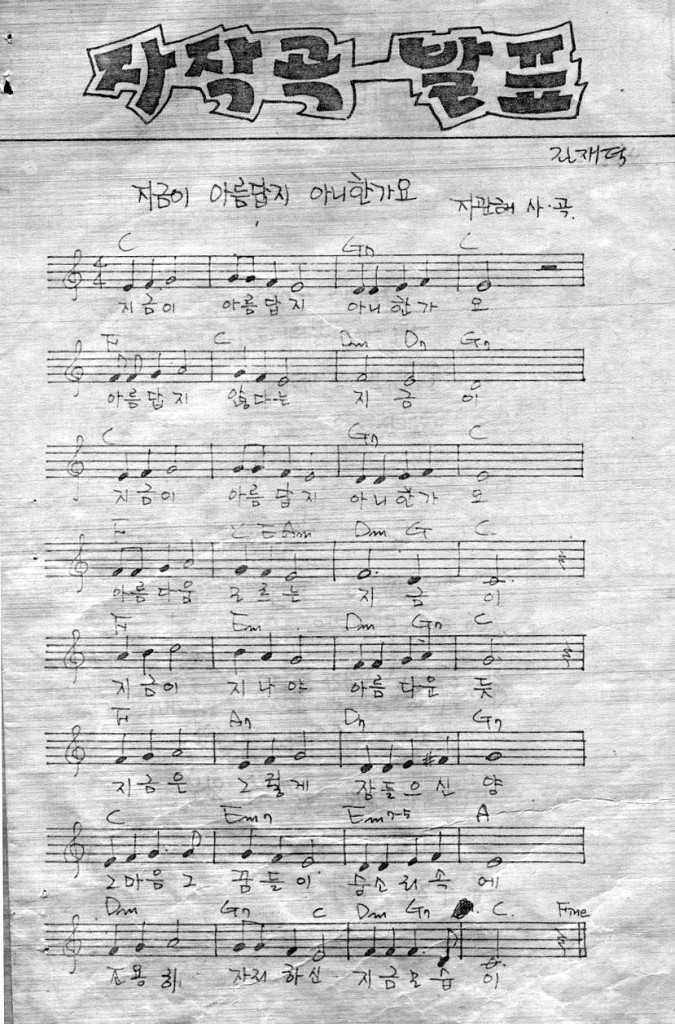 자작곡 발표
지금이 아름답지 아니한가요
작곡.
C G7 C
4 4
지금이 아름답지 아니한가 요
F C Dm D7 G7
아름답지 않다는 지 금 이
C G7 C
지금이 아름답지 아니한가 요
F C E Am Dm G C.
아름다움 모르는 지 금 이
F Em Dm G7 C
지금이 지나야 아름다운 듯
F A7 D7 G7
지금은 그렇게 잠들으신 양
C Em7 Em7-5 A
그마음 그 꿈들이 숨소리속 에
Dm G7 C Dm G7 C. Fine
조용히 자리하신 지금모습 이